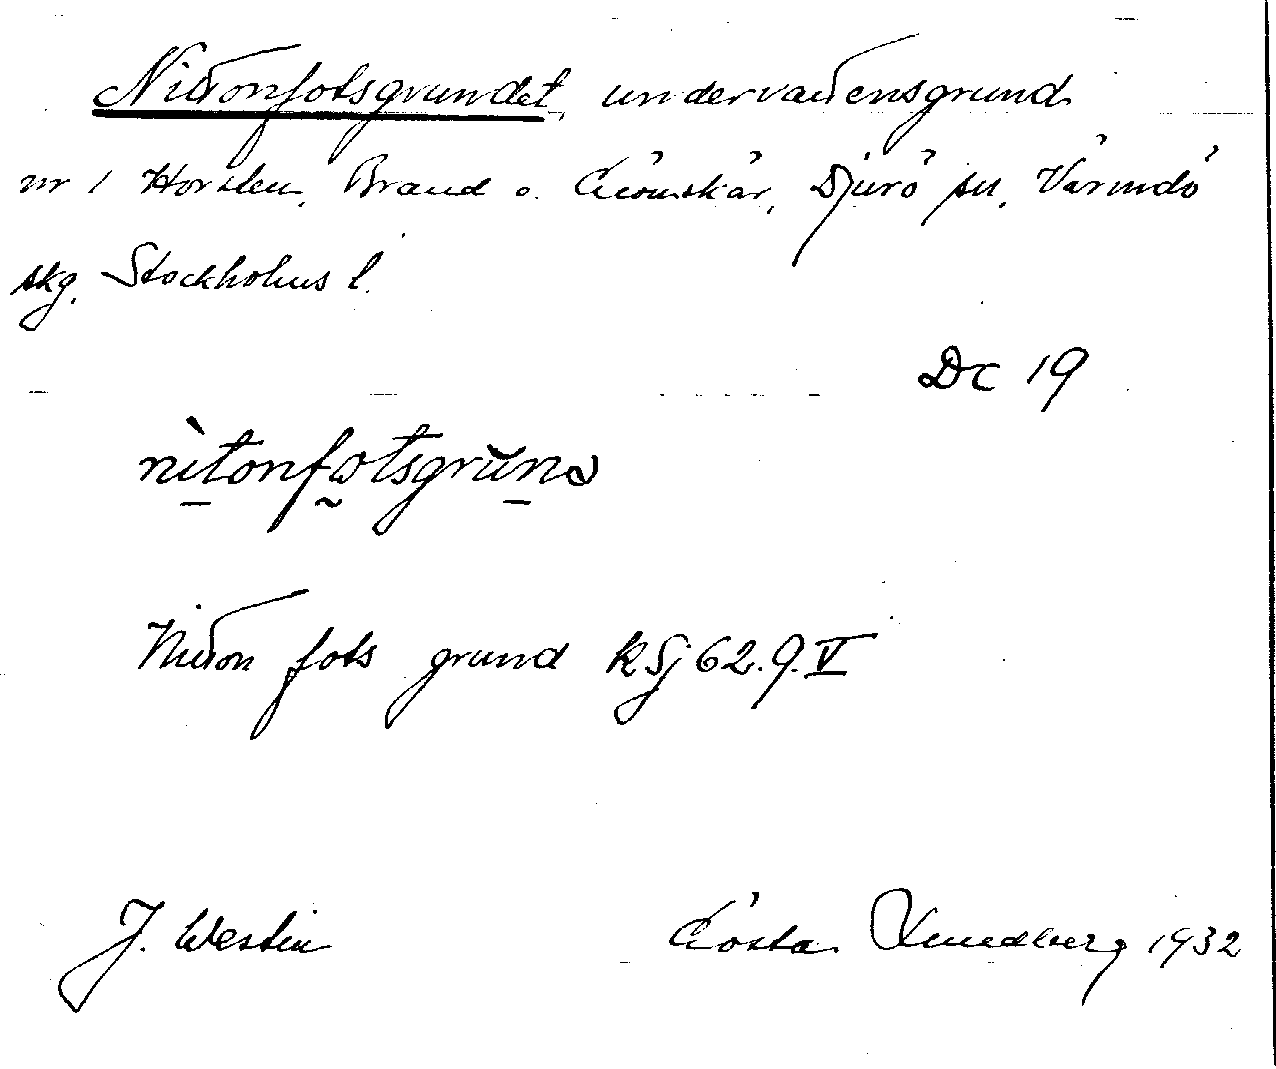 Nittonfotsgrundet, undervattensgrund
nr 1 Horsten, Brand o. Grönskär, Djurö sn, Värmdö
skg. Stockholms l.
Dc 19
nìtonfotsgrŭnd
Nitton fots grund kSj 62.9.V
J. Westin
Gösta Lundberg 1932